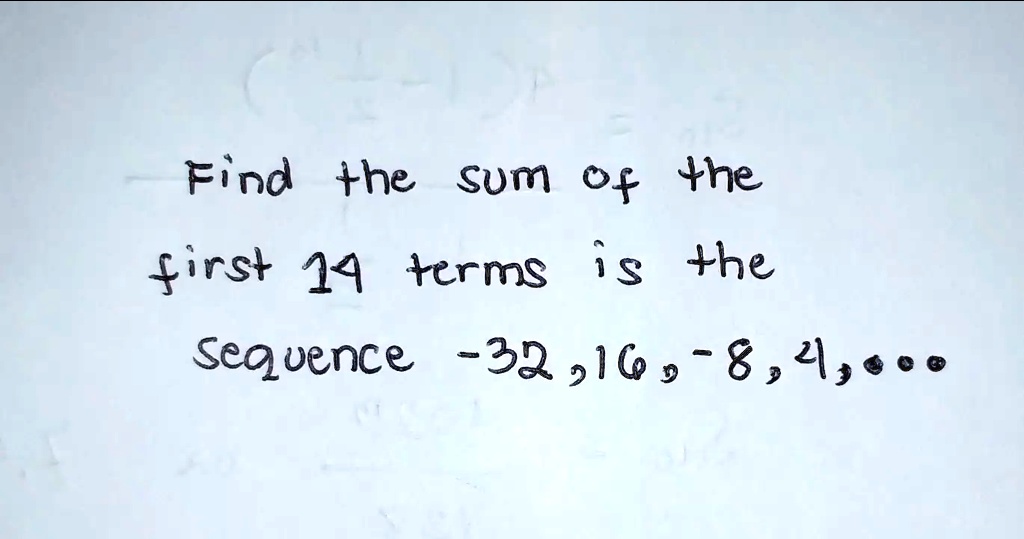 Find the sum of the
first 14 terms is the
sequence -32, 16, -8, 4, ...